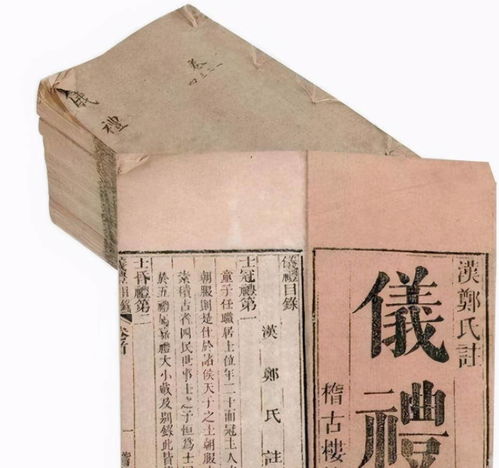 儀禮
卷
漢鄭氏註
儀禮
稽古樓
儀禮目錄
漢鄭氏註
士冠禮第一
童子任職居士位年二十而冠主人
朝服則是仕於諸侯天子之士朝服
素積古者四民世事士之子恒爲士
於五禮屬嘉禮大小戴及別錄此皆
士昏禮第二